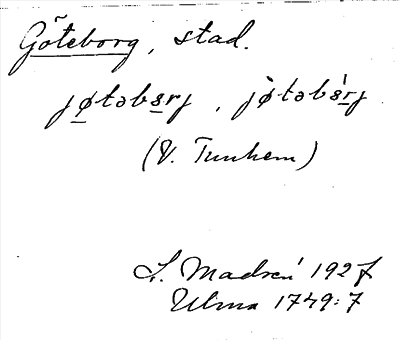 Göteborg, stad.
jøtəbɛrj, jøtəbɛrj
(V. Tunhem)
L. Madsén 1927
Ulma 1749:7